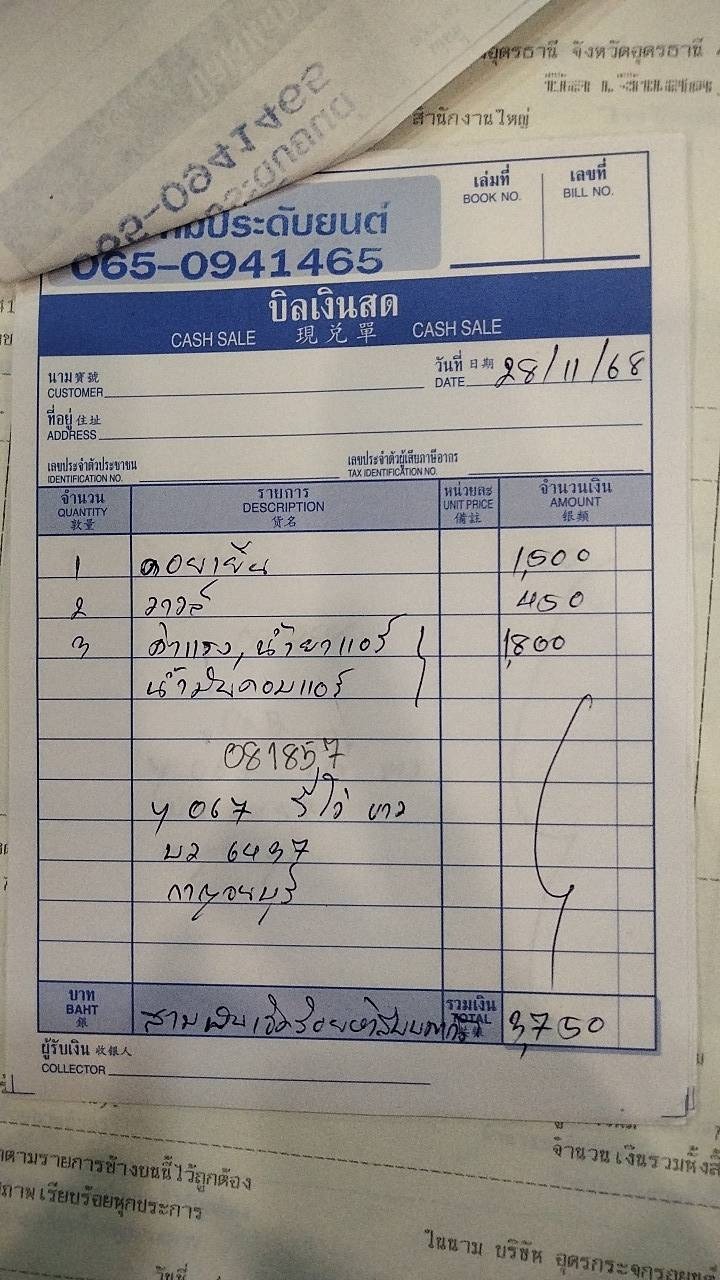 อุดรธานี จังหวัดอุดรธานี
สำนักงานใหญ่
ประดับยนต์
065-0941465
เล่มที่ เลขที่
BOOK NO. BILL NO.
บิลเงินสด
CASH SALE 現兌單 CASH SALE
นาม寶號 วันที่ 日期
CUSTOMER DATE 28/11/68
ที่อยู่ 住址
ADDRESS
เลขประจำตัวประชาชน เลขประจำตัวผู้เสียภาษีอากร
IDENTIFICATION NO. TAX IDENTIFICATION NO.
จำนวน รายการ หน่วยละ จำนวนเงิน
QUANTITY DESCRIPTION UNIT PRICE AMOUNT
貨名 備註 銀額
1 คอยเย็น 1,500
2 วาวล์ 450
3 ค่าแรง, น้ำยาแอร์ 1,800
น้ำมันคอมแอร์
081857
ๆ 067 รีโว่ ขาว
6437
กาญจนบุรี
บาท รวมเงิน
BAHT สามพันเจ็ดร้อยห้าสิบบาท TOTAL 3,750
銀
ผู้รับเงิน 收銀人
COLLECTOR
ตามรายการข้างบนนี้ไว้ถูกต้อง
ภาพเรียบร้อยทุกประการ
จำนวนเงินรวมทั้งสิ้
ในนาม บริษัท อุดรกระจกรถยนต์
วันที่